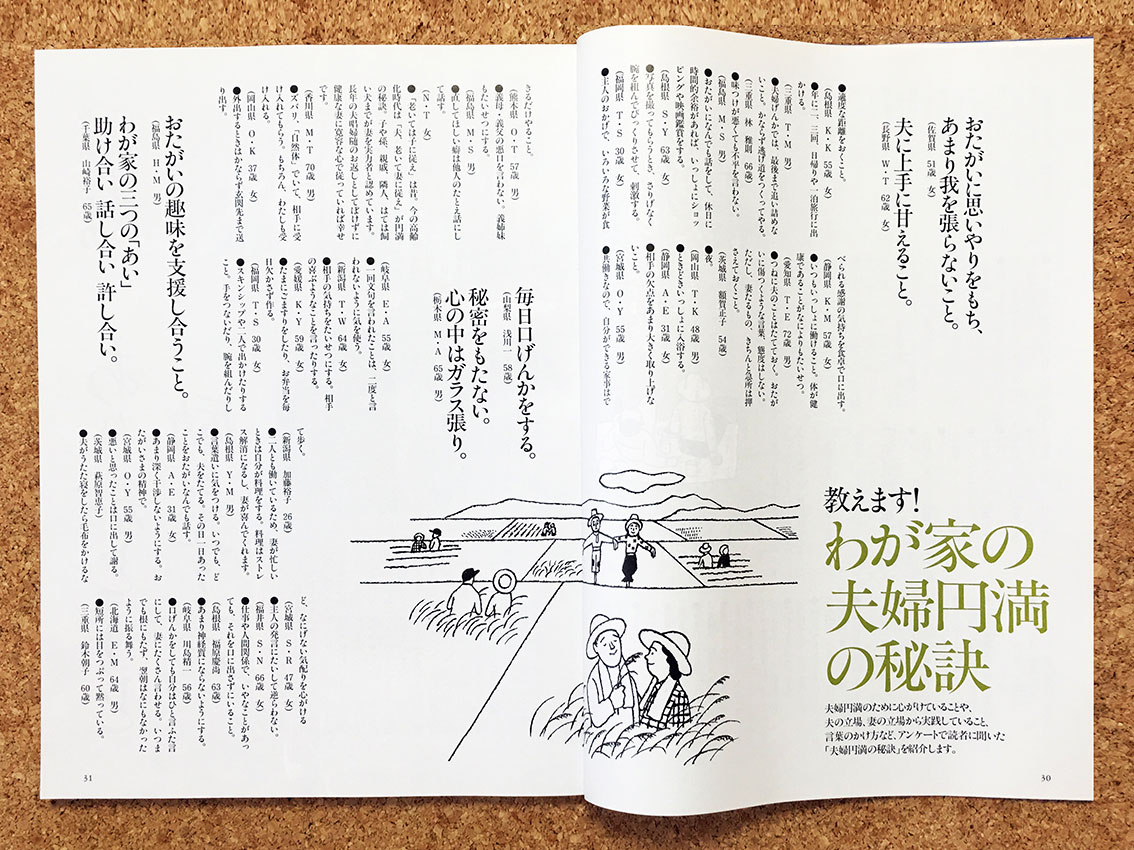 教えます!
わが家の
夫婦円満
の秘訣
夫婦円満のために心がけていることや、
夫の立場、妻の立場から実践していること、
言葉のかけ方など、アンケートで読者に聞いた
「夫婦円満の秘訣」を紹介します。
おたがいに思いやりをもち、
あまり我を張らないこと。
(佐賀県 51歳 女)
夫に上手に甘えること。
(長野県 W・T 62歳 女)
●適度な距離をおくこと。
(島根県 K・K 55歳 女)
●年に二、三回、日帰りや一泊旅行に出
かける。
(三重県 T・M 男)
●夫婦げんかでは、最後まで追い詰めな
いこと。かならず逃げ道をつくってやる。
(三重県 林 雅則 66歳)
●味つけが悪くても不平を言わない。
(福島県 M・S 男)
●おたがいになんでも話をして、休日に
時間的余裕があれば、いっしょにショッ
ピングや映画鑑賞をする。
(島根県 S・Y 63歳 男)
●写真を撮ってもらうとき、さりげなく
腕を組んでびっくりさせて、刺激する。
(福岡県 T・S 30歳 女)
●主人のおかげで、いろいろな野菜が食
べられる感謝の気持ちを食卓で口に出す。
(静岡県 K・M 57歳 女)
●いつもいっしょに働けること。体が健
康であることがなによりもたいせつ。
(愛知県 T・E 72歳 女)
●つねに夫のことはたてておく。おたが
いに傷つくような言葉、態度はしない。
ただし、妻たるもの、きちんと急所は押
さえておくこと。
(茨城県 額賀正子 54歳)
●夜。
(岡山県 T・K 48歳 男)
●ときどきいっしょに入浴する。
(静岡県 A・E 31歳 女)
●相手の欠点をあまり大きく取り上げな
いこと。
(宮城県 O・Y 55歳 男)
●共働きなので、自分ができる家事はで
30
きるだけやること。
(熊本県 O・T 57歳 男)
●義母・義父の悪口を言わない。義姉妹
もたいせつにする。
(福島県 M・S 男)
●直してほしい癖は他人のたとえ話にし
て話す。
(N・T 女)
●「老いては子に従え」は昔。今の高齢
化時代は「夫、老いて妻に従え」が円満
の秘訣。子や孫、親戚、隣人、はては飼
い犬までが妻を実力者と認めています。
長年の夫唱婦随のお返しとしてぼけずに
健康な妻に寛容な心で従っていれば幸せ
です。
(香川県 M・T 70歳 男)
●ズバリ、「自然体」でいて、相手に受
け入れてもらう。もちろん、わたしも受
け入れる。
(岡山県 O・K 37歳 女)
●外出するときはかならず玄関先まで送
り出す。
おたがいの趣味を支援し合うこと。
(福島県 H・M 男)
わが家の三つの「あい」
助け合い 話し合い 許し合い。
(千葉県 山崎裕子 65歳)
毎日口げんかをする。
(山梨県 浅川一 58歳)
秘密をもたない。
心の中はガラス張り。
(栃木県 M・A 65歳 男)
(岐阜県 E・A 55歳 女)
●一回文句を言われたことは、二度と言
われないように気を使う。
(新潟県 T・W 64歳 男)
●相手の気持ちをたいせつにする。相手
の喜ぶようなことを言ったりする。
(愛媛県 K・Y 59歳 女)
●たまにごますりをしたり、お弁当を毎
日欠かさず作る。
(福岡県 T・S 30歳 女)
●スキンシップや二人で出かけたりする
こと。手をつないだり、腕を組んだりし
て歩く。
(新潟県 加藤裕子 26歳)
●二人とも働いているため、妻が忙しい
ときは自分が料理をする。料理はストレ
ス解消になるし、妻が喜んでくれます。
(島根県 Y・M 男)
●言葉遣いに気をつける。いつでも、ど
こでも、夫をたてる。その日一日あった
ことをおたがいなんでも話す。
(静岡県 A・E 31歳 女)
●あまり深く干渉しないようにする。お
たがいさまの精神で。
(宮城県 O・Y 55歳 男)
●悪いと思ったことは口に出して謝る。
(茨城県 萩原智恵子)
●夫がうたた寝をしたら毛布をかけるな
ど、なにげない気配りを心がける
(宮城県 S・R 47歳 女)
●主人の発言にたいして逆らわない。
(福井県 S・N 66歳 女)
●仕事や人間関係で、いやなことがあっ
ても、それを口に出さずにいること。
(島根県 福原慶尚 63歳)
●あまり神経質にならないようにする。
(岐阜県 川島精一 56歳)
●口げんかをしても自分はひと言ふた言
にして、妻にたくさん言わせる。いつま
でも根にもたず、翌朝はなにもなかった
ように振る舞う。
(北海道 E・M 64歳 男)
●短所には目をつぶって黙っている。
(三重県 鈴木朝子 60歳)
31